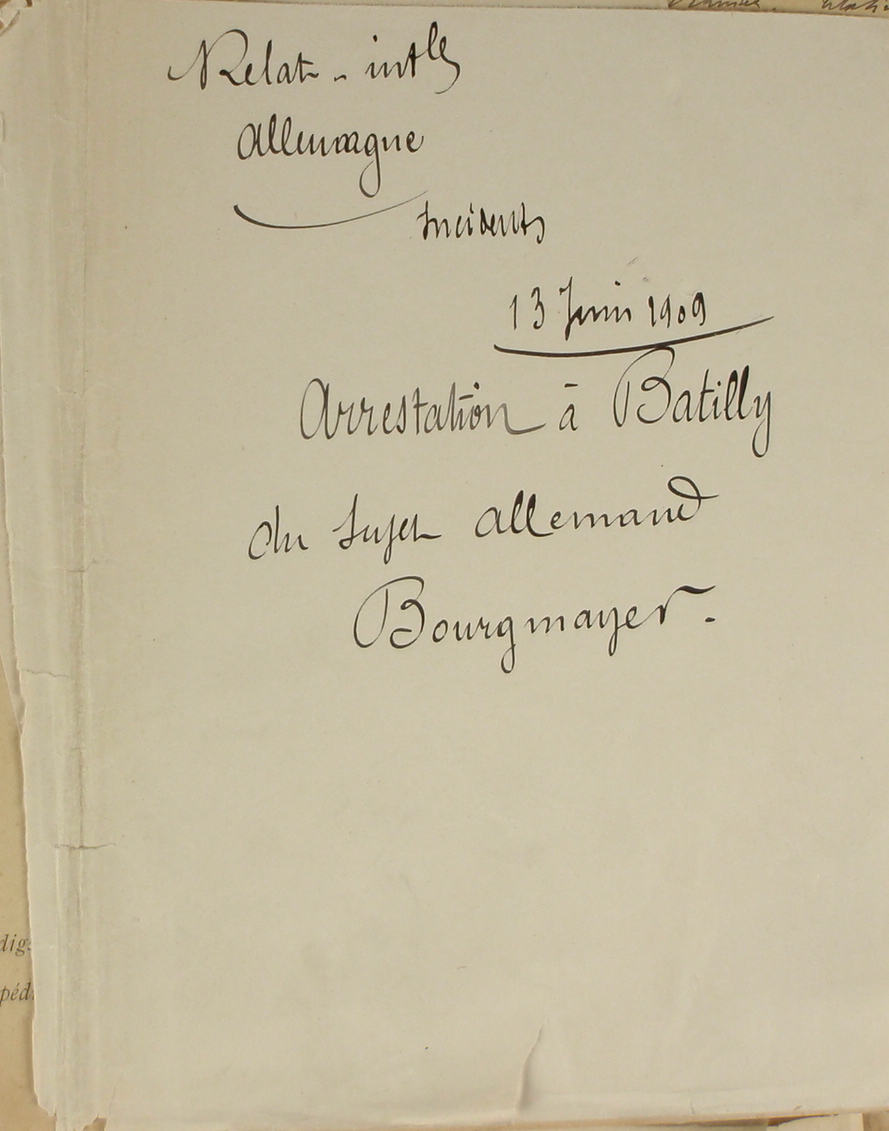 Relat - int^les
Allemagne
Incidents
13 Juin 1909
Arrestation à Batilly
du sujet allemand
Bourgmayer.
dig
péd